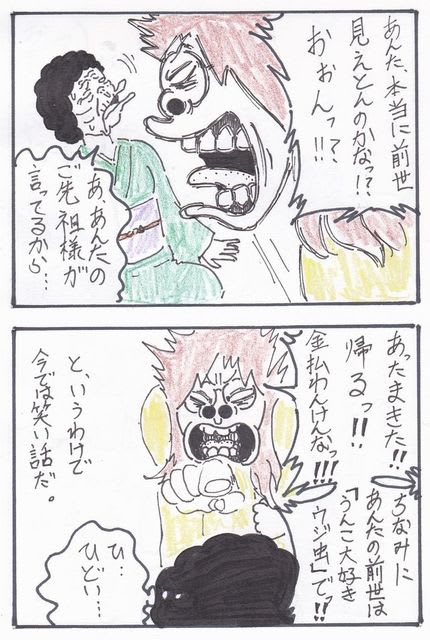 あんた、本当に前世
見えとんのかなっ!?、
おぉんっ?、
!!
あ、あんたの
ご先祖様が
言ってるから…
あったまきた!!
帰るっ!!
金払わんけんなっ!!!
ちなみに
あんたの前世は
「うんこ大好き
ウジ虫」でっ!!
ひ‥
ひどい…
と、いうわけで
今では笑い話だ。